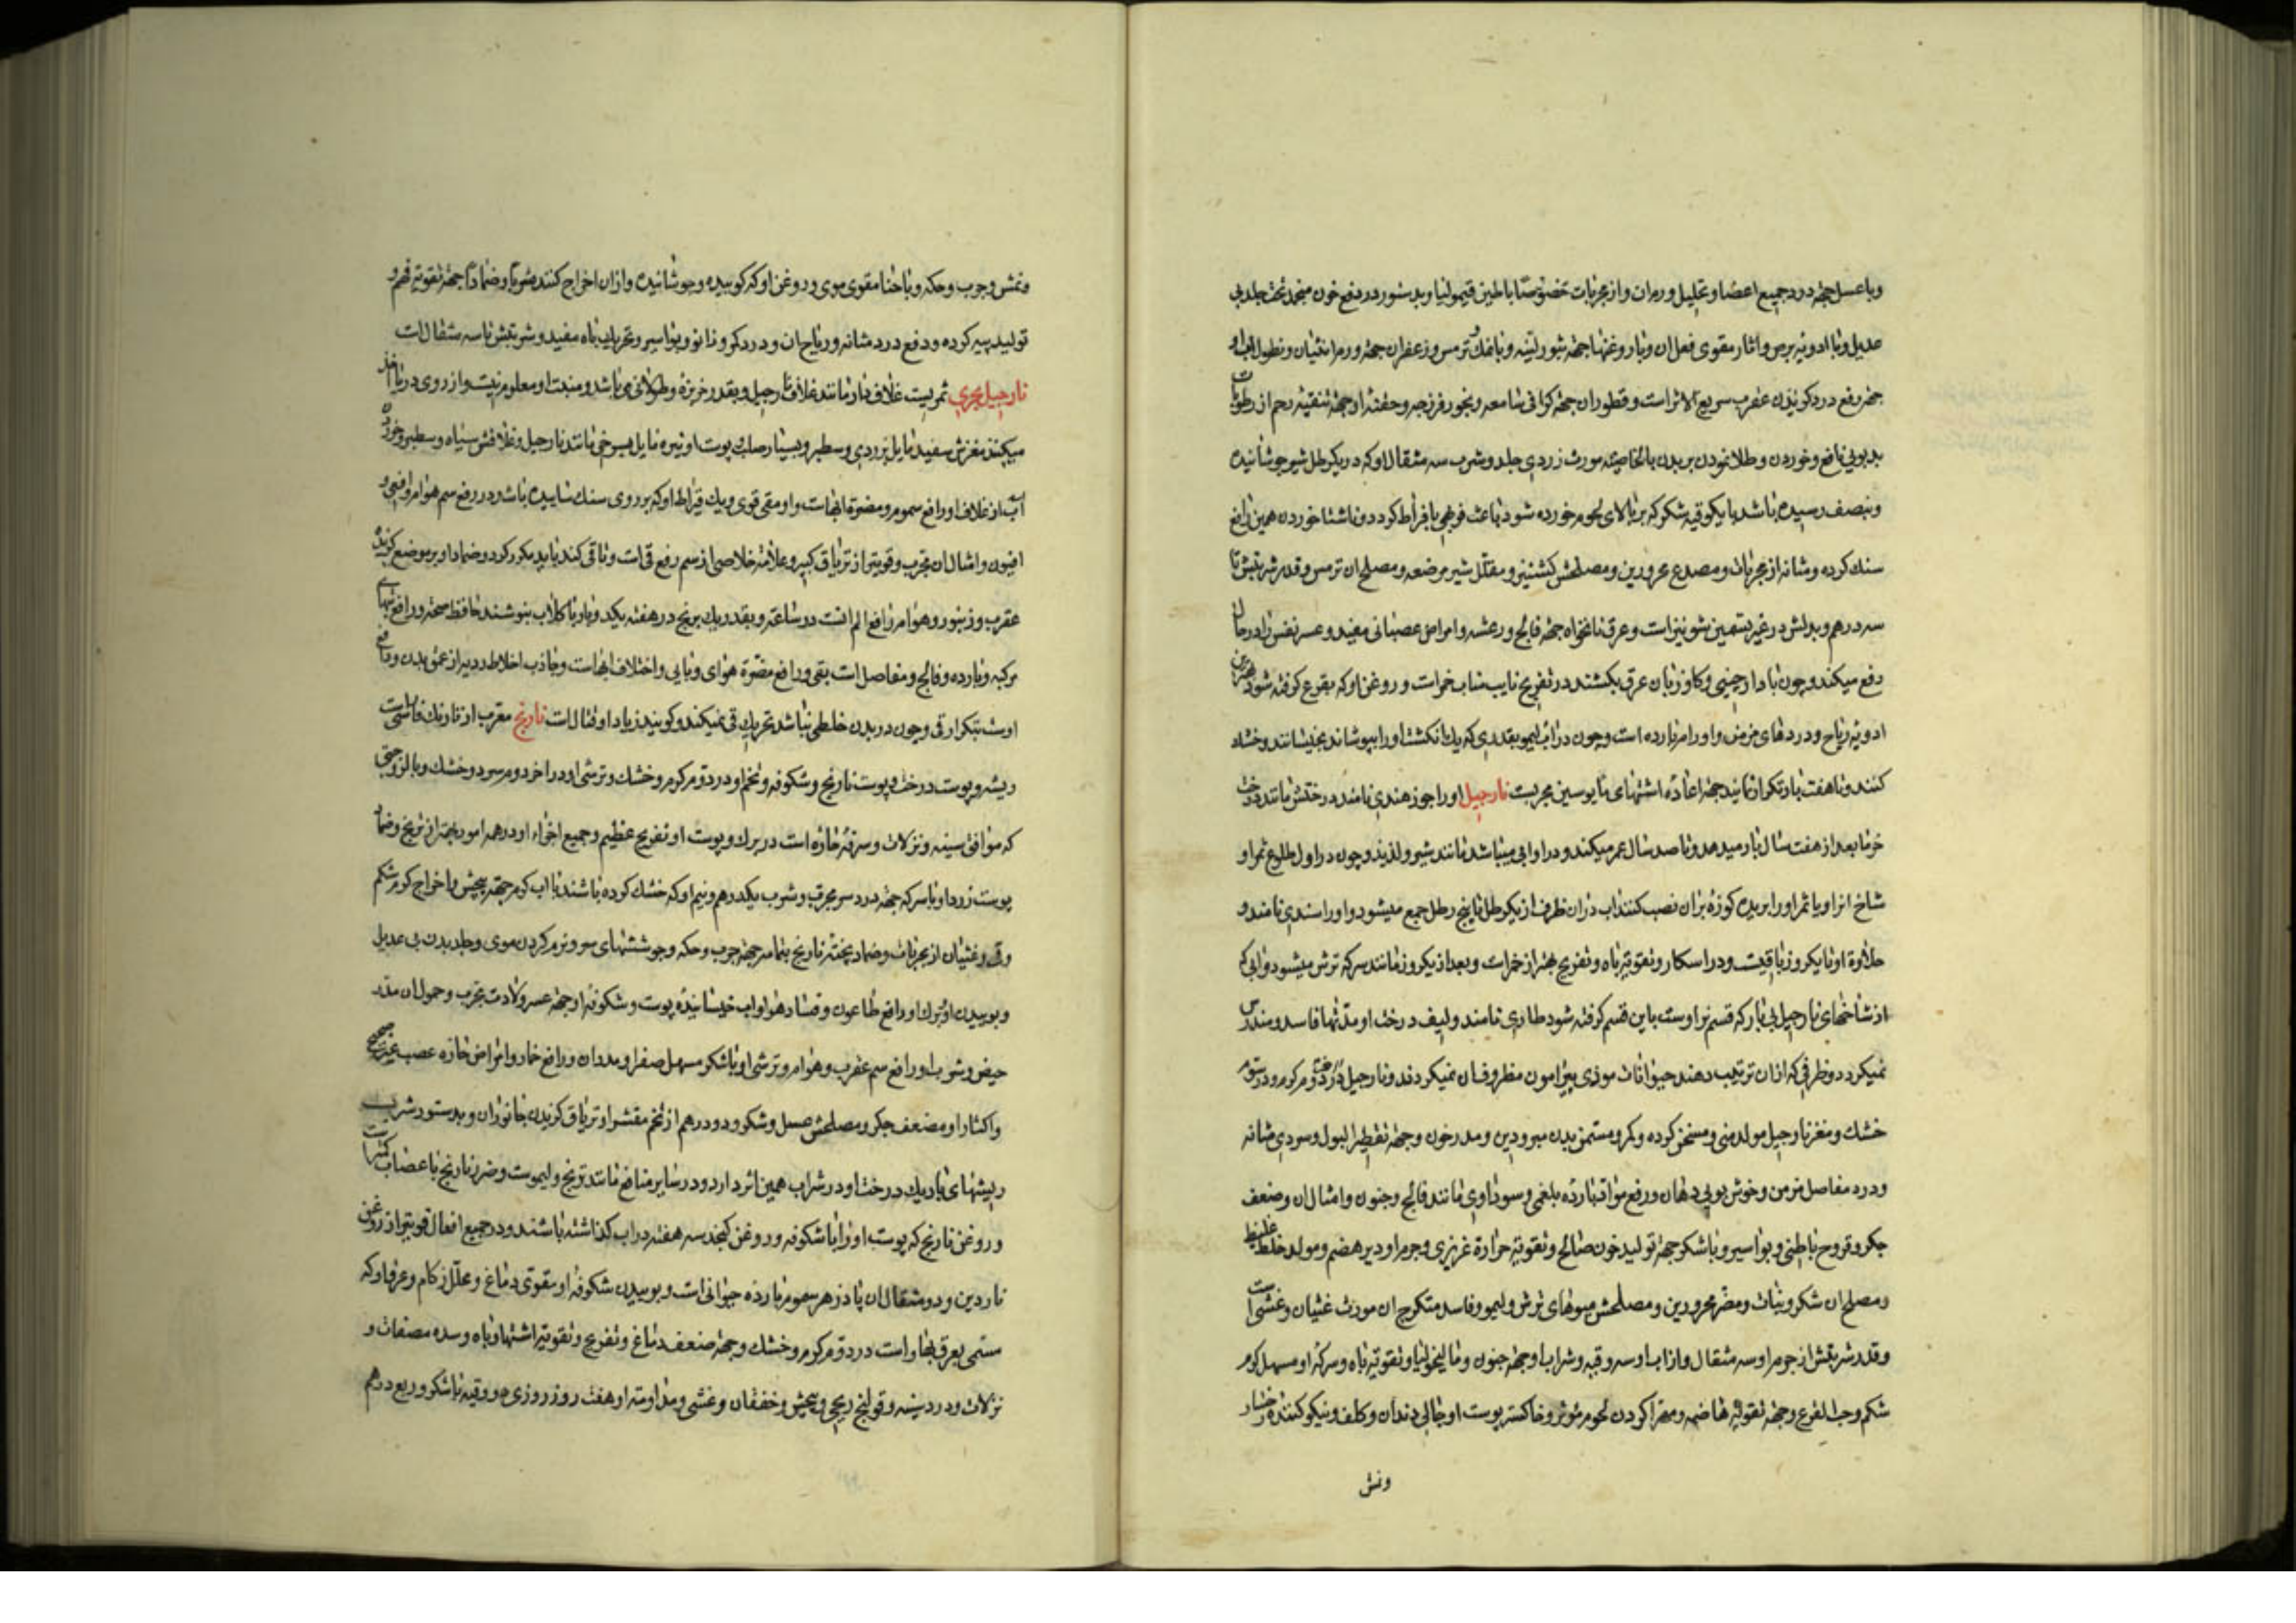 وباعسل جهة درد جمیع اعضا و تحلیل ورمان واز مجربات خصوصًا باطین قیمولیا وبدستور در دفع خون منجمد تحت جلد بی
عدیل وبا ادویه برص واثار مقوی فعل ان وبا روغنها جهة شور لبنیه وبا نمک ترمس وزعفران جهة ورم انثیان ونطول اب او
جهة رفع درد کزیدن عقرب سریع الاثر است وقطور ان جهة کرانی سامعه وبخور فرزجه وحقنه او جهة تنقیه رحم از رطوبات
بدبویی نافع وخوردن وطلا نمودن بر بدن بالخاصیه مورث زردی جلد وشرب سه مثقال او که در یکرطل شیر جوشانیده
وبنصف رسیده باشد با یکوقیه شکر که بر بالای لحوم خورده شود باعث فربهی بافراط کردد وناشتا خوردن همین رافع
سنک کرده ومثانه از مجربات ومصدع محرورین ومصلحش کشنیز ومقلل شیر مرضعه ومصلح ان ترمس وقدر شربتش تا
سه درهم وبدلش در غیر تسمین شونیز است وعرق نانخواه جهة فالج ورعشه وامراض عصبانی مفید وعسر نفس را در حال
دفع میکند وچون با دارچینی وکاوزبان عرق بکشند در تفریح نایب مناب خمر است وروغن او که بقرع کرفته شود بهترین
ادویه ریاح ودردهای مزمن واورام بارده است وچون در اب لیمو بقدری که یک انکشت او را بپوشاند بخیسانند وخشک
کنند وتا هفت بار تکرار نمایند جهة اعاده اشتهای مایوسین مجربست نارجیل او را جوز هندی نامند درختش مانند درخت
خرما بعد از هفت سال بار میدهد وتا صد سال عمر میکند ودر او ابی میباشد مانند شیر ولذیذ وچون در اول طلوع ثمر او
شاخ انرا ویا ثمر او را بریده کوزۀ بران نصب کنند اب دران ظرف از یکرطل تا پنج رطل جمع میشود واو را سندی نامند و
حلاوة او تا یکروز باقیست ودر اسکار وتقویة باه وتفریح بهتر از خمر است وبعد از یکروز مانند سرکه ترش میشود وابی که
از شاخهای نارجیل بی بار که قسم نر اوست باین قسم کرفته شود طاری نامند ولیف درخت او مدتها فاسد ومندرس
نمیکردد وظرفی که ازان ترتیب دهند حیوانات موذی پیرامون مظروف ان نمیکردند ونارجیل در دویم کرم ودر سیم
خشک ومغز نارجیل مولد منی ومسخن کرده وکمر ومسمن بدن مبرودین ومدر خون وجهة تقطیر البول وسردی مثانه
ودرد مفاصل مزمن وخوش بویی دهان ورفع مواد بارده بلغمی وسوداوی مانند فالج وجنون وامثال ان وضعف
جکر وقروح باطنی وبواسیر وبا شکر جهة تولید خون صالح وتقویة حرارة غریزی وجرم او دیر هضم ومولد خلط غلیظ
ومصلح ان شکر ونبات ومضر محرورین ومصلحش میوهای ترش ولیمو وفاسد متکرج ان مورث غثیان وغشی است
وقدر شربتش از جرم او سه مثقال واز اب او سه وقیه وشراب او جهة جنون ومالیخولیا وتقویة باه وسرکه او مسهل کرم
شکم وحب القرع وجهة تقویة هاضمه ومهرا کردن لحوم موثر وخاکستر پوست او جالی دندان وکلف ونیکو کننده رخسار
ونمش
ونمش وجرب وحکه وبا حنا مقوی موی وروغن او که کوبیده وجوشانیده وازان اخراج کنند شربًا وضمادًا جهة تقویة فهم و
تولید پیه کرده ودفع درد مثانه وریاح ان ودرد کمر وزانو وبواسیر وتحریک باه مفید وشربتش تا سه مثقال است
نارجیل بحری ثمریست غلاف دار مانند غلاف نارجیل وبقدر خربزه وطولانی می باشد ومنبت او معلوم نیست واز روی دریا اخذ
میکنند مغزش سفید مایل بزردی وسطبر وبسیار صلب وپوست او تیره مایل بسرخی مانند نارجیل وغلافش سیاه وسطبر وخوردن
اب از غلاف او رافع سموم ومضرة ابهاست واو مقی قوی ویک قیراط او که بر روی سنک ساییده باشد در رفع سم هوام وافعی و
افیون وامثال ان مجرب وقویتر از تریاق کبیر وعلامة خلاصی از سم رفع قی است وتا قی کند باید مکرر کرد وضماد او بر موضع کزیدن
عقرب وزنبور وهوام رافع الم انست در ساعة وبقدر یک برنج در هفته یکدو بار با کلاب بنوشند حافظ صحة ورافع تبهای
مرکبه وبارده وفالج ومفاصل است بقی ورافع مضرة هوای وبایی واختلاف ابهاست وجاذب اخلاط ردیه از عمق بدن ودافع
اوست بتکرار قی وچون در بدن خلطی نباشد تحریک قی نمیکند وکویند زیاد او قتال است نارنج معرب از نارنک فارسی است
ریشه وپوست درخت وپوست نارنج وشکوفه وتخم او در دویم کرم وخشک وترشی او در اخر دویم سرد وخشک وبا لزوجتی
که موافق سینه ونزلات وسرفه حاره است در برک وپوست او تفریح عظیم وجمیع اجزاء او در همه امور بهتر از ترنج وضماد
پوست زرد او با سرکه جهة درد سر مجرب وشرب یکدرهم ونیم او که خشک کرده باشند با اب کرم جهة پیچش واخراج کرم شکم
وقی وغثیان از مجربات وضماد پخته نارنج بتمامه جهة جرب وحکه وجوششهای سر ونرم کردن موی وجلد بدن بی عدیل
وبوییدن او وبرک او رافع طاعون وفساد هوا واب خیسانیده پوست وشکوفۀ او جهة عسر ولادت مجرب وحمول ان مدر
حیض وشرب او رافع سم عقرب وهوام وترشی او با شکر مسهل صفرا ومدر ان ورافع خمار وامراض حاره عصب غیر صحیح
واکثار او مضعف جکر ومصلحش عسل وشکر ودو درهم از تخم مقشر او تریاق کزیدن جانوران وبدستور شرب
ریشهای باریک درخت او در شراب همین اثر دارد ودر سایر منافع مانند ترنج ولیموست وضرر نارنج باعضاب کمتر است
وروغن نارنج که پوست او را با شکوفه وروغن کنجد سه هفته در اب کذاشته باشند ودر جمیع افعال قویتر از روغن
ناردین ودو مثقال ان پادزهر سموم بارده حیوانی است وبوییدن شکوفۀ او مقوی دماغ ومحلل زکام وعرق او که
مسمی بعرق بهار است در دویم کرم وخشک وجهة ضعف دماغ وتفریح وتقویة اشتها وباه وسده مصفات و
نزلات ودرد سینه وقولنج ریحی وپیچش وخفقان وغشی ومداومة او هفت روز روزی دو وقیه با شکر وربع درهم